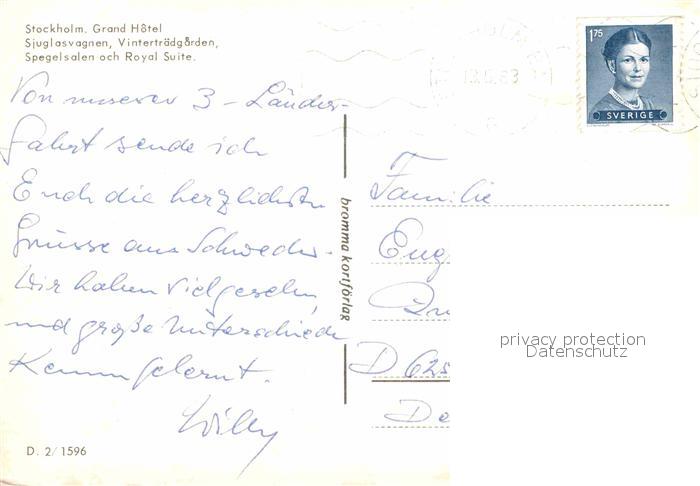 Stockholm. Grand Hôtel
Sjuglasvagnen, Vinterträdgården,
Spegelsalen och Royal Suite.
1.75
SVERIGE
Von unserer 3-Länder-
fahrt sende ich
Euch die herzlichsten
Grüsse aus Schweden.
Wir haben viel gesehen
und große Unterschiede
Kennengelernt.
Willy
D. 2/1596
bromma kortförlag
Familie
Eug
D 625
privacy protection
Datenschutz